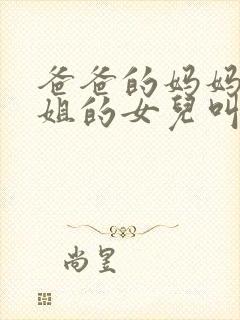 爸爸的妈妈
姐的女兒叫
尚昱